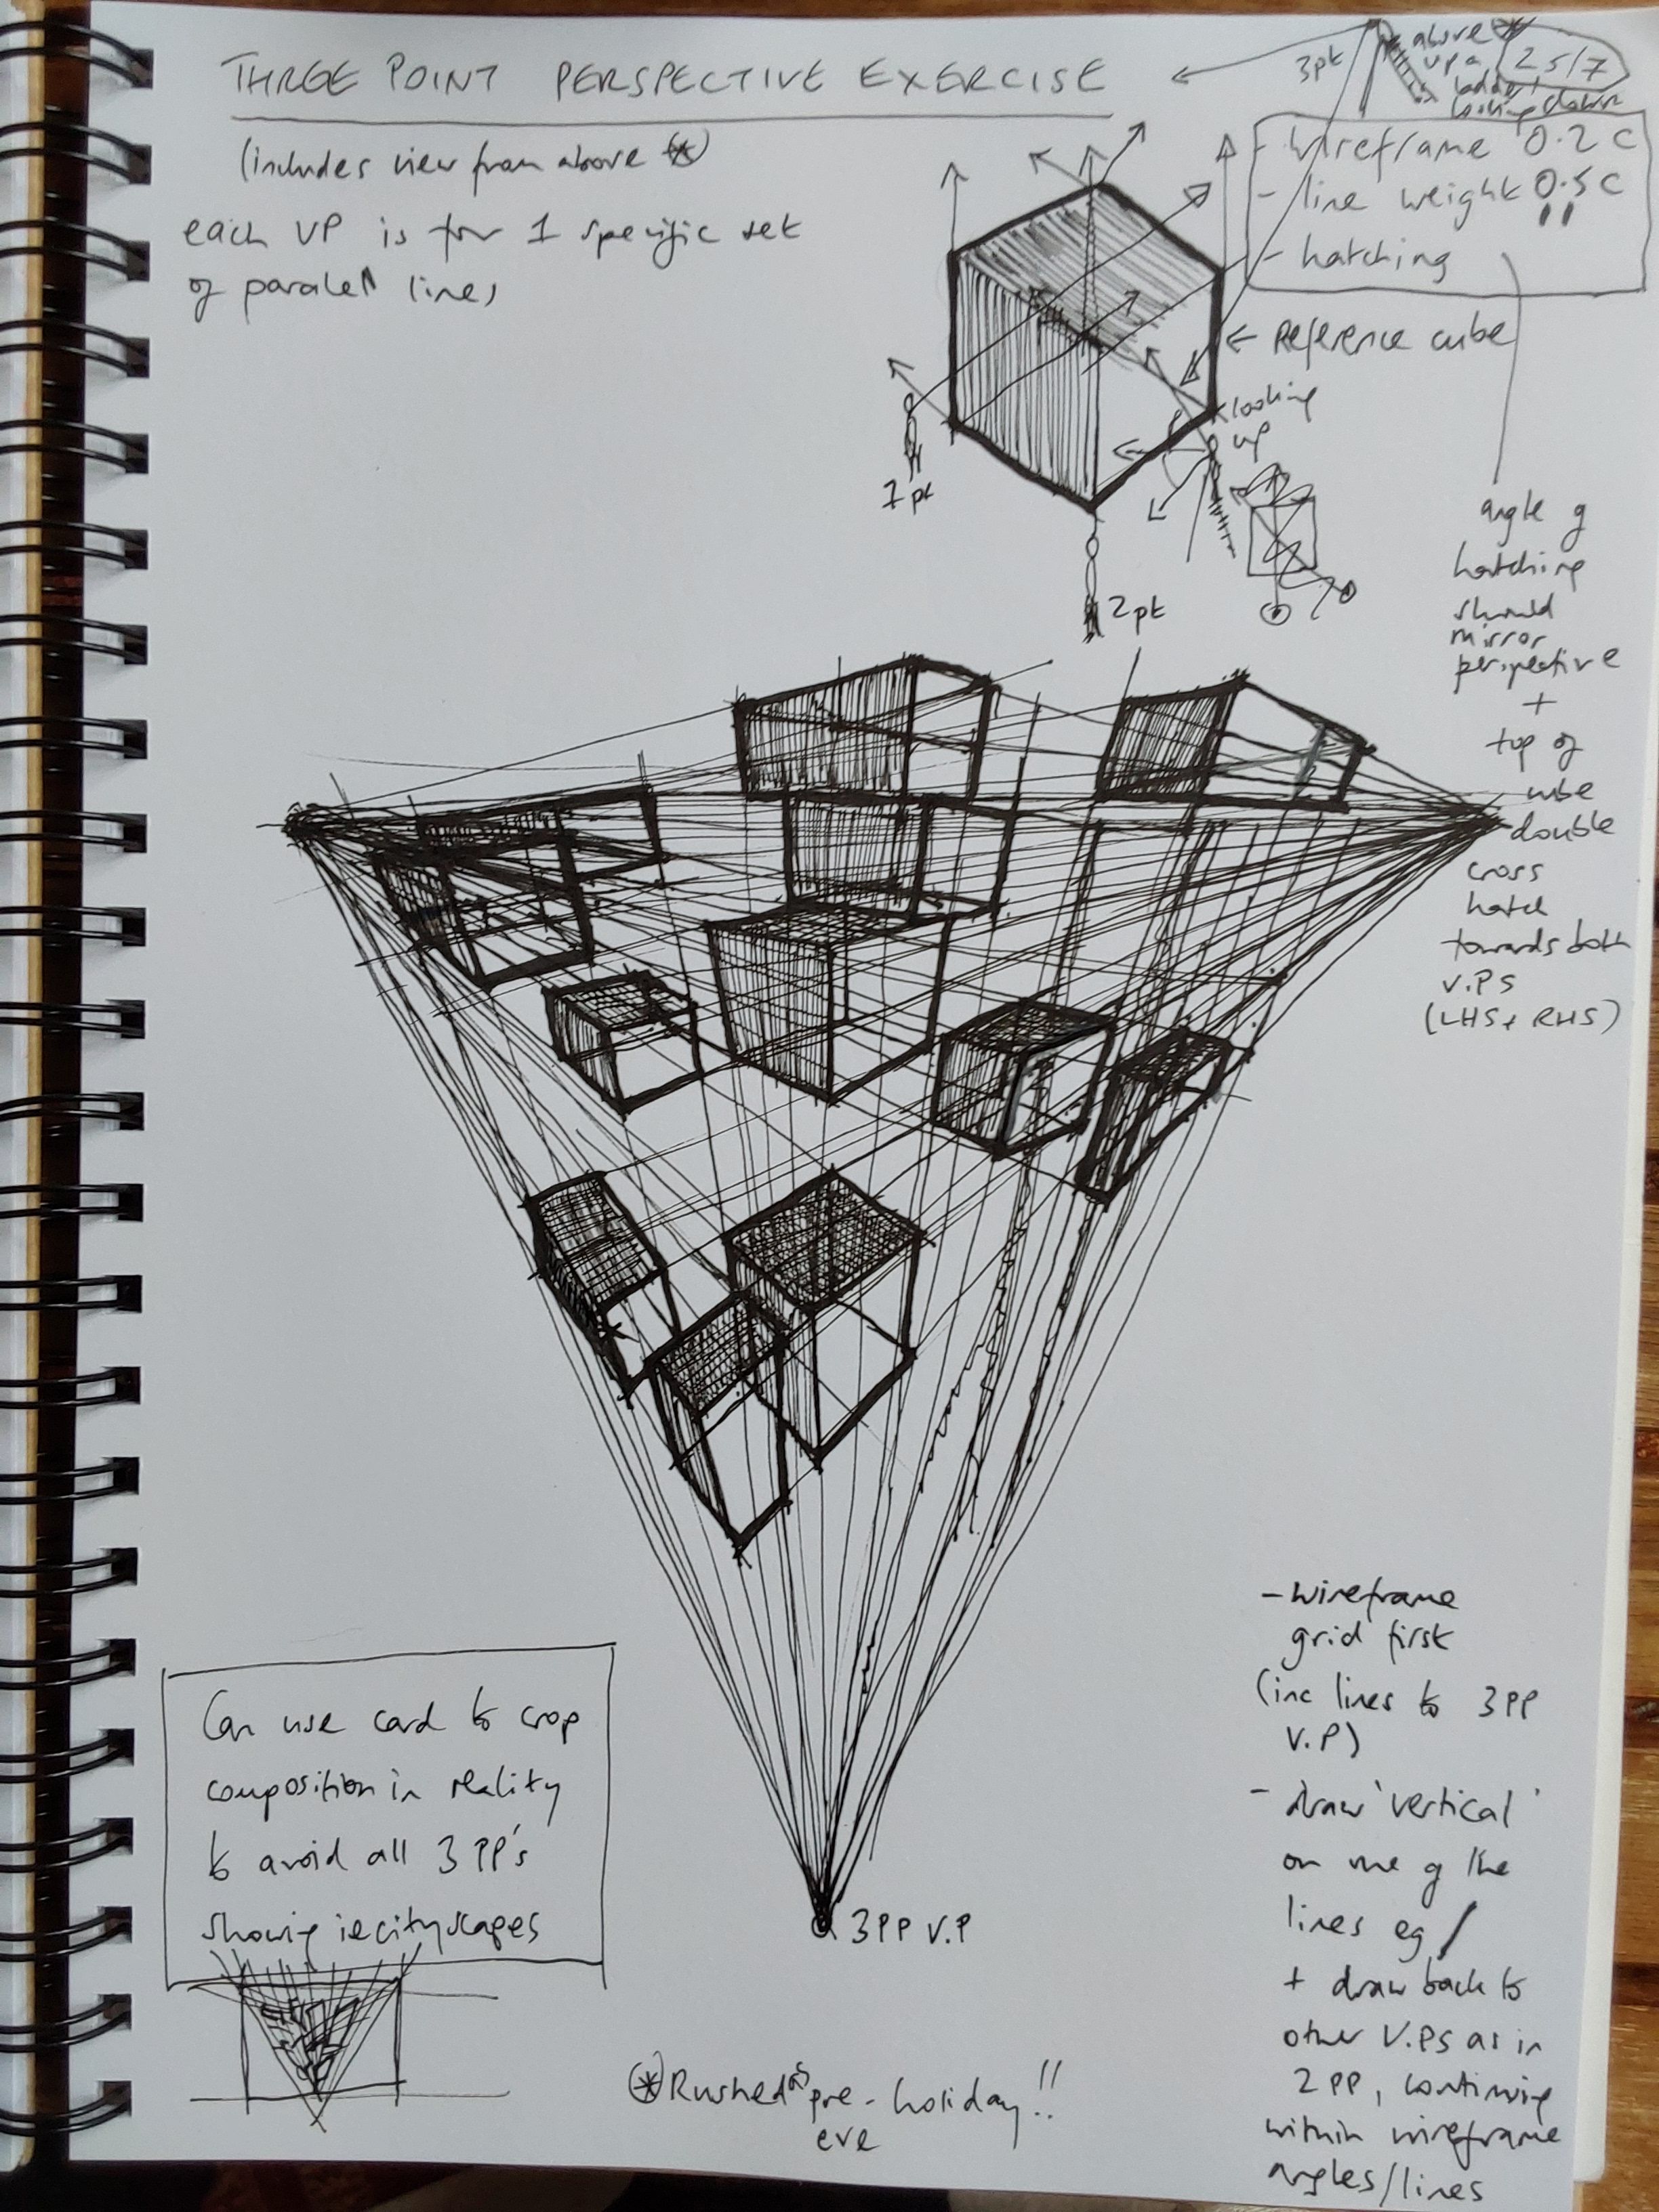 THREE POINT PERSPECTIVE EXERCISE
(includes view from above *)
each VP is for 1 specific set
of parallel lines
3pt
above *
up a
ladder
looking down
25/7
- wireframe 0.2 C
- line weight 0.5 C
- hatching
← Reference cube
looking
up
1pt
2pt
angle of
hatching
should
mirror
perspective
+
top of
cube
double
cross
hatch
towards both
V.PS
(LHS + RHS)
3PP V.P
Can use card to crop
composition in reality
to avoid all 3 PP's
showing ie cityscapes
- wireframe
grid first
(inc lines to 3PP
V.P)
- draw 'vertical'
on one of the
lines eg /
+ draw back to
other V.PS as in
2PP, continuing
within wireframe
angles/lines
* Rushed as pre-holiday!!
eve